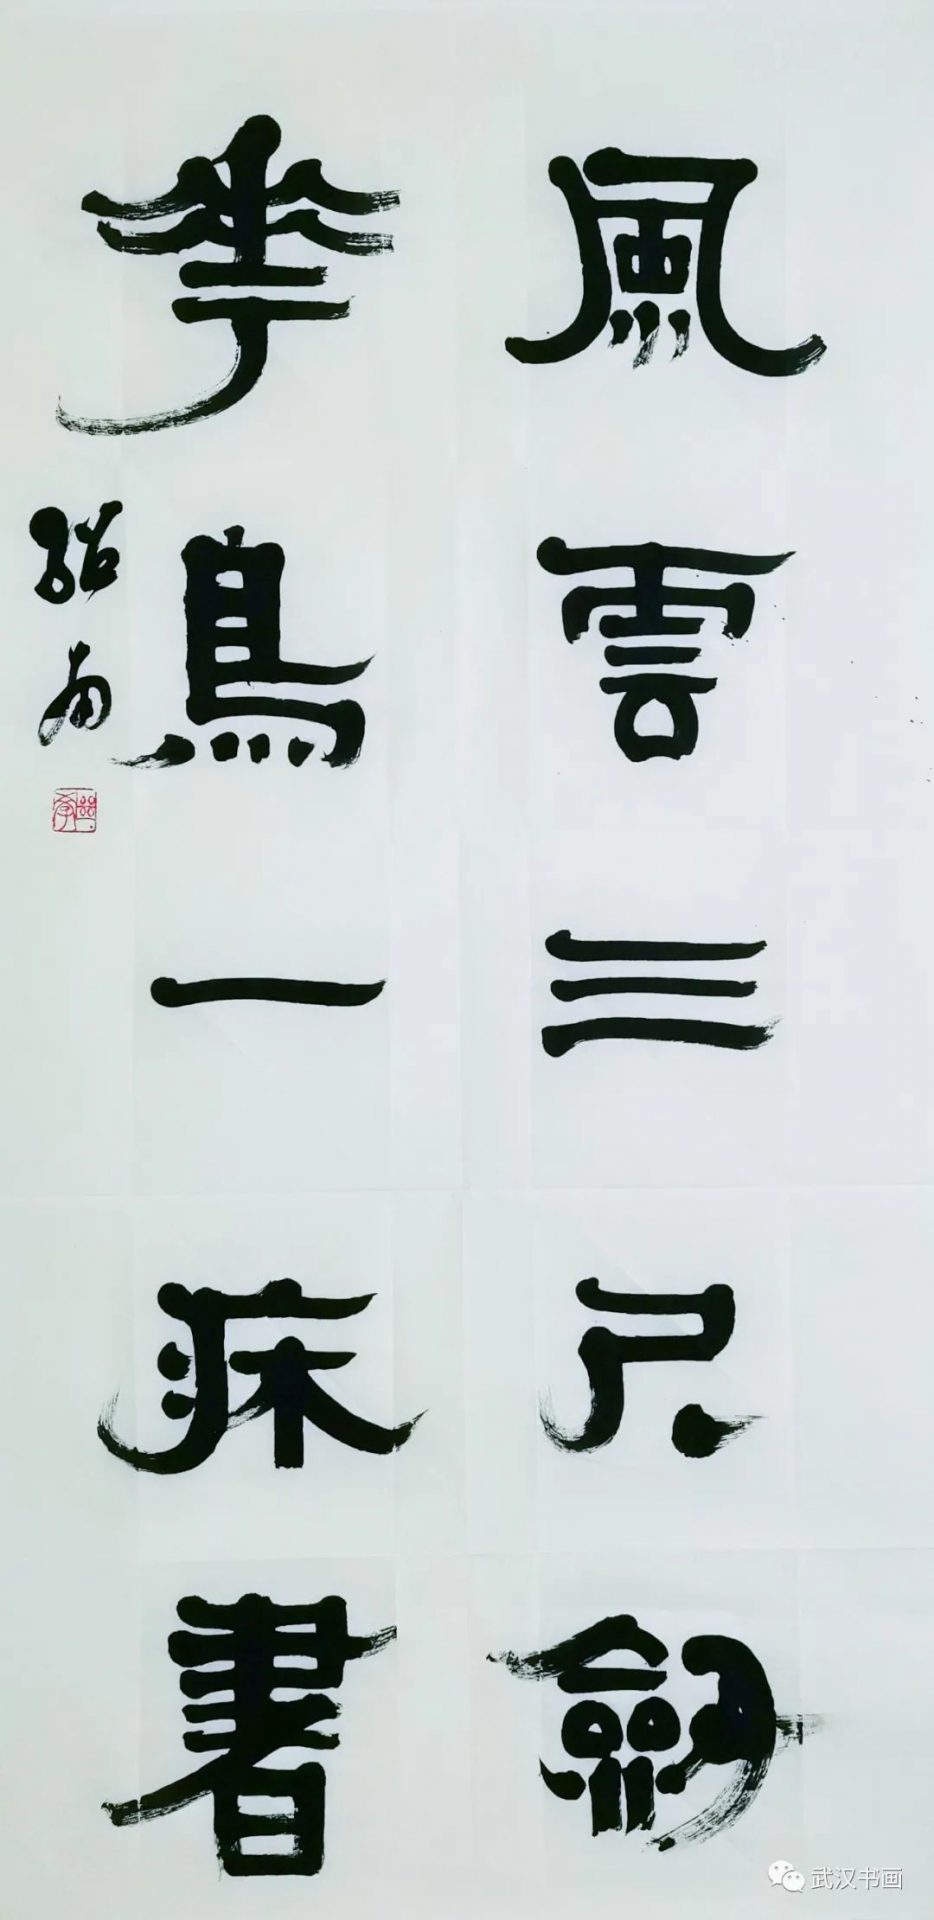 風雲三尺劍
華鳥一床書
武汉书画